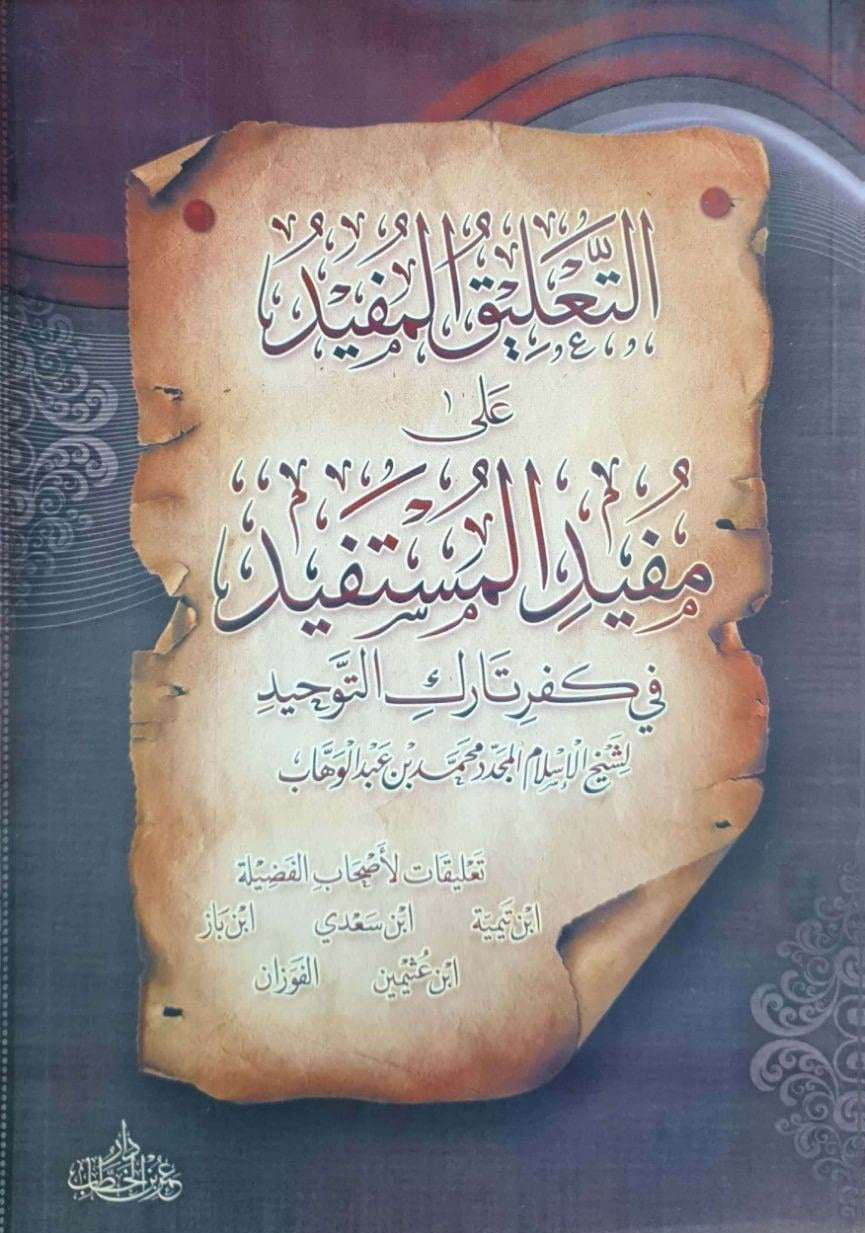 التَّعْلِيقُ المُفِيْدُ
عَلَى
مُفِيْدِ المُسْتَفِيْدِ
فِي كُفْرِ تَارِكِ التَّوْحِيدِ
لِشَيْخِ الإِسْلَامِ المُجَدِّدِ مُحَمَّدِ بْنِ عَبْدِ الوَهَّابِ
تَعْلِيقَات لأَصْحَابِ الفَضِيْلَة
ابْن تَيْمِيَّة ابْن سَعْدِي ابْن بَاز
ابْن عُثَيْمِين الفَوْزَان
دار
عمر بن الخطاب